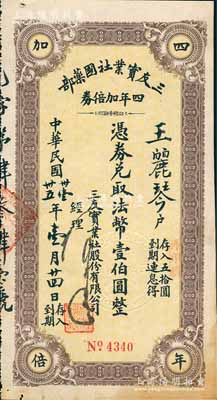 四年加倍
三友實業社國藥部
四年加倍券
王麗琴戶
存入五拾圓
到期連息得
憑券兌取法幣壹佰圓整
三友實業社股份有限公司
經理
中華民國
卅壹
卅五
年壹月廿四日
存入
到期
No 4340